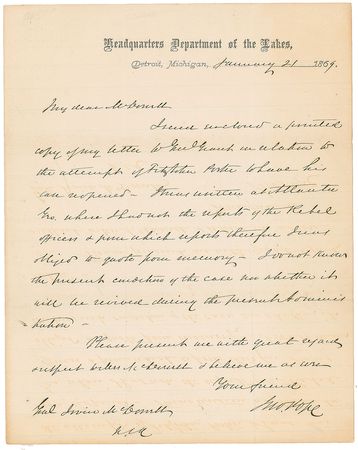 Headquarters Department of the Lakes,
Detroit, Michigan, January 21 1869.
My dear McDowell
I send enclosed a printed
copy of my letter to Genl Grant in relation to
the attempt of Fitz John Porter to have his
case reopened - It was written at Atlanta
Geo. where I had not the reports of the Rebel
officers & from which reports therefore I was
obliged to quote from memory - I do not know
the present condition of the case nor whether it
will be revived during the present Adminis
tration -
Please present me with great regard
& respect to Mrs McDowell & believe me as ever
Your friend
Genl Irvin McDowell Jno. Pope
U.S.A